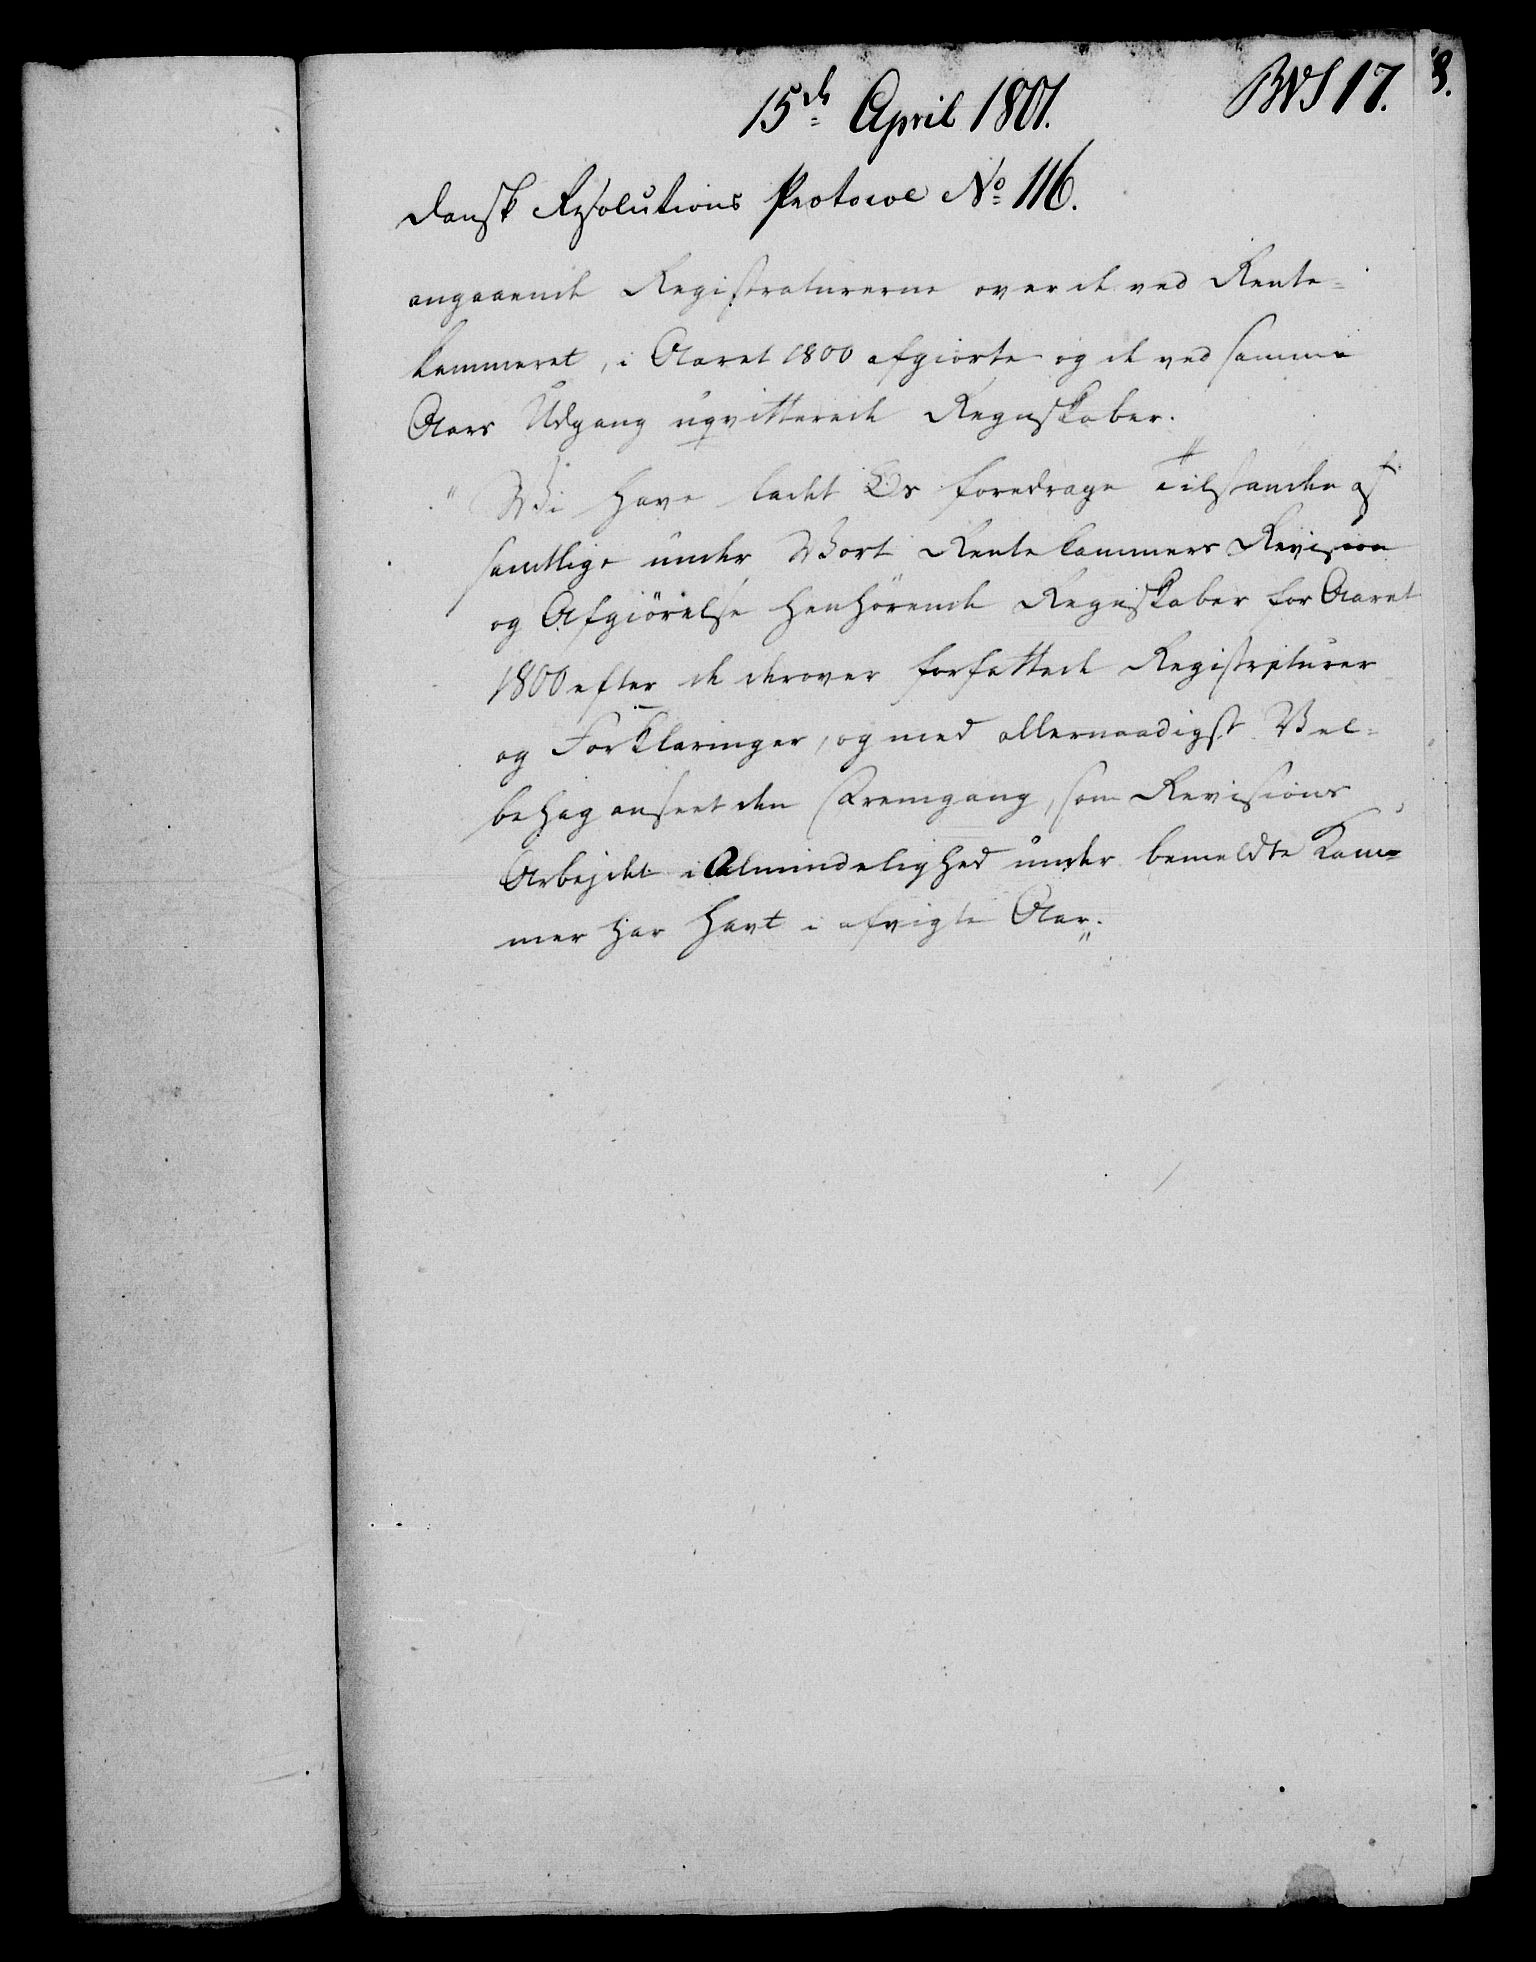 15de April 1801. BNS 17.
Dansk Resolutions Protocol No 116.
angaaende Registraturerne over de ved Rente-
kammeret, i Aaret 1800 afgiorte og de ved samme
Aars Udgang uqvitterede Regnskaber.
"Wi have ladet Os foredrage Tilstanden af
samtlige under Wort Rentekammers Revision
og Afgiørelse henhørende Regnskaber for Aaret
1800 efter de derover forfattede Registraturer
og Forklaringer, og med allernaadigst Vel-
behag anseet den Fremgang, som Revisions
Arbejdet i Almindelighed under bemeldte Kam-
mer har havt i afvigte Aar."